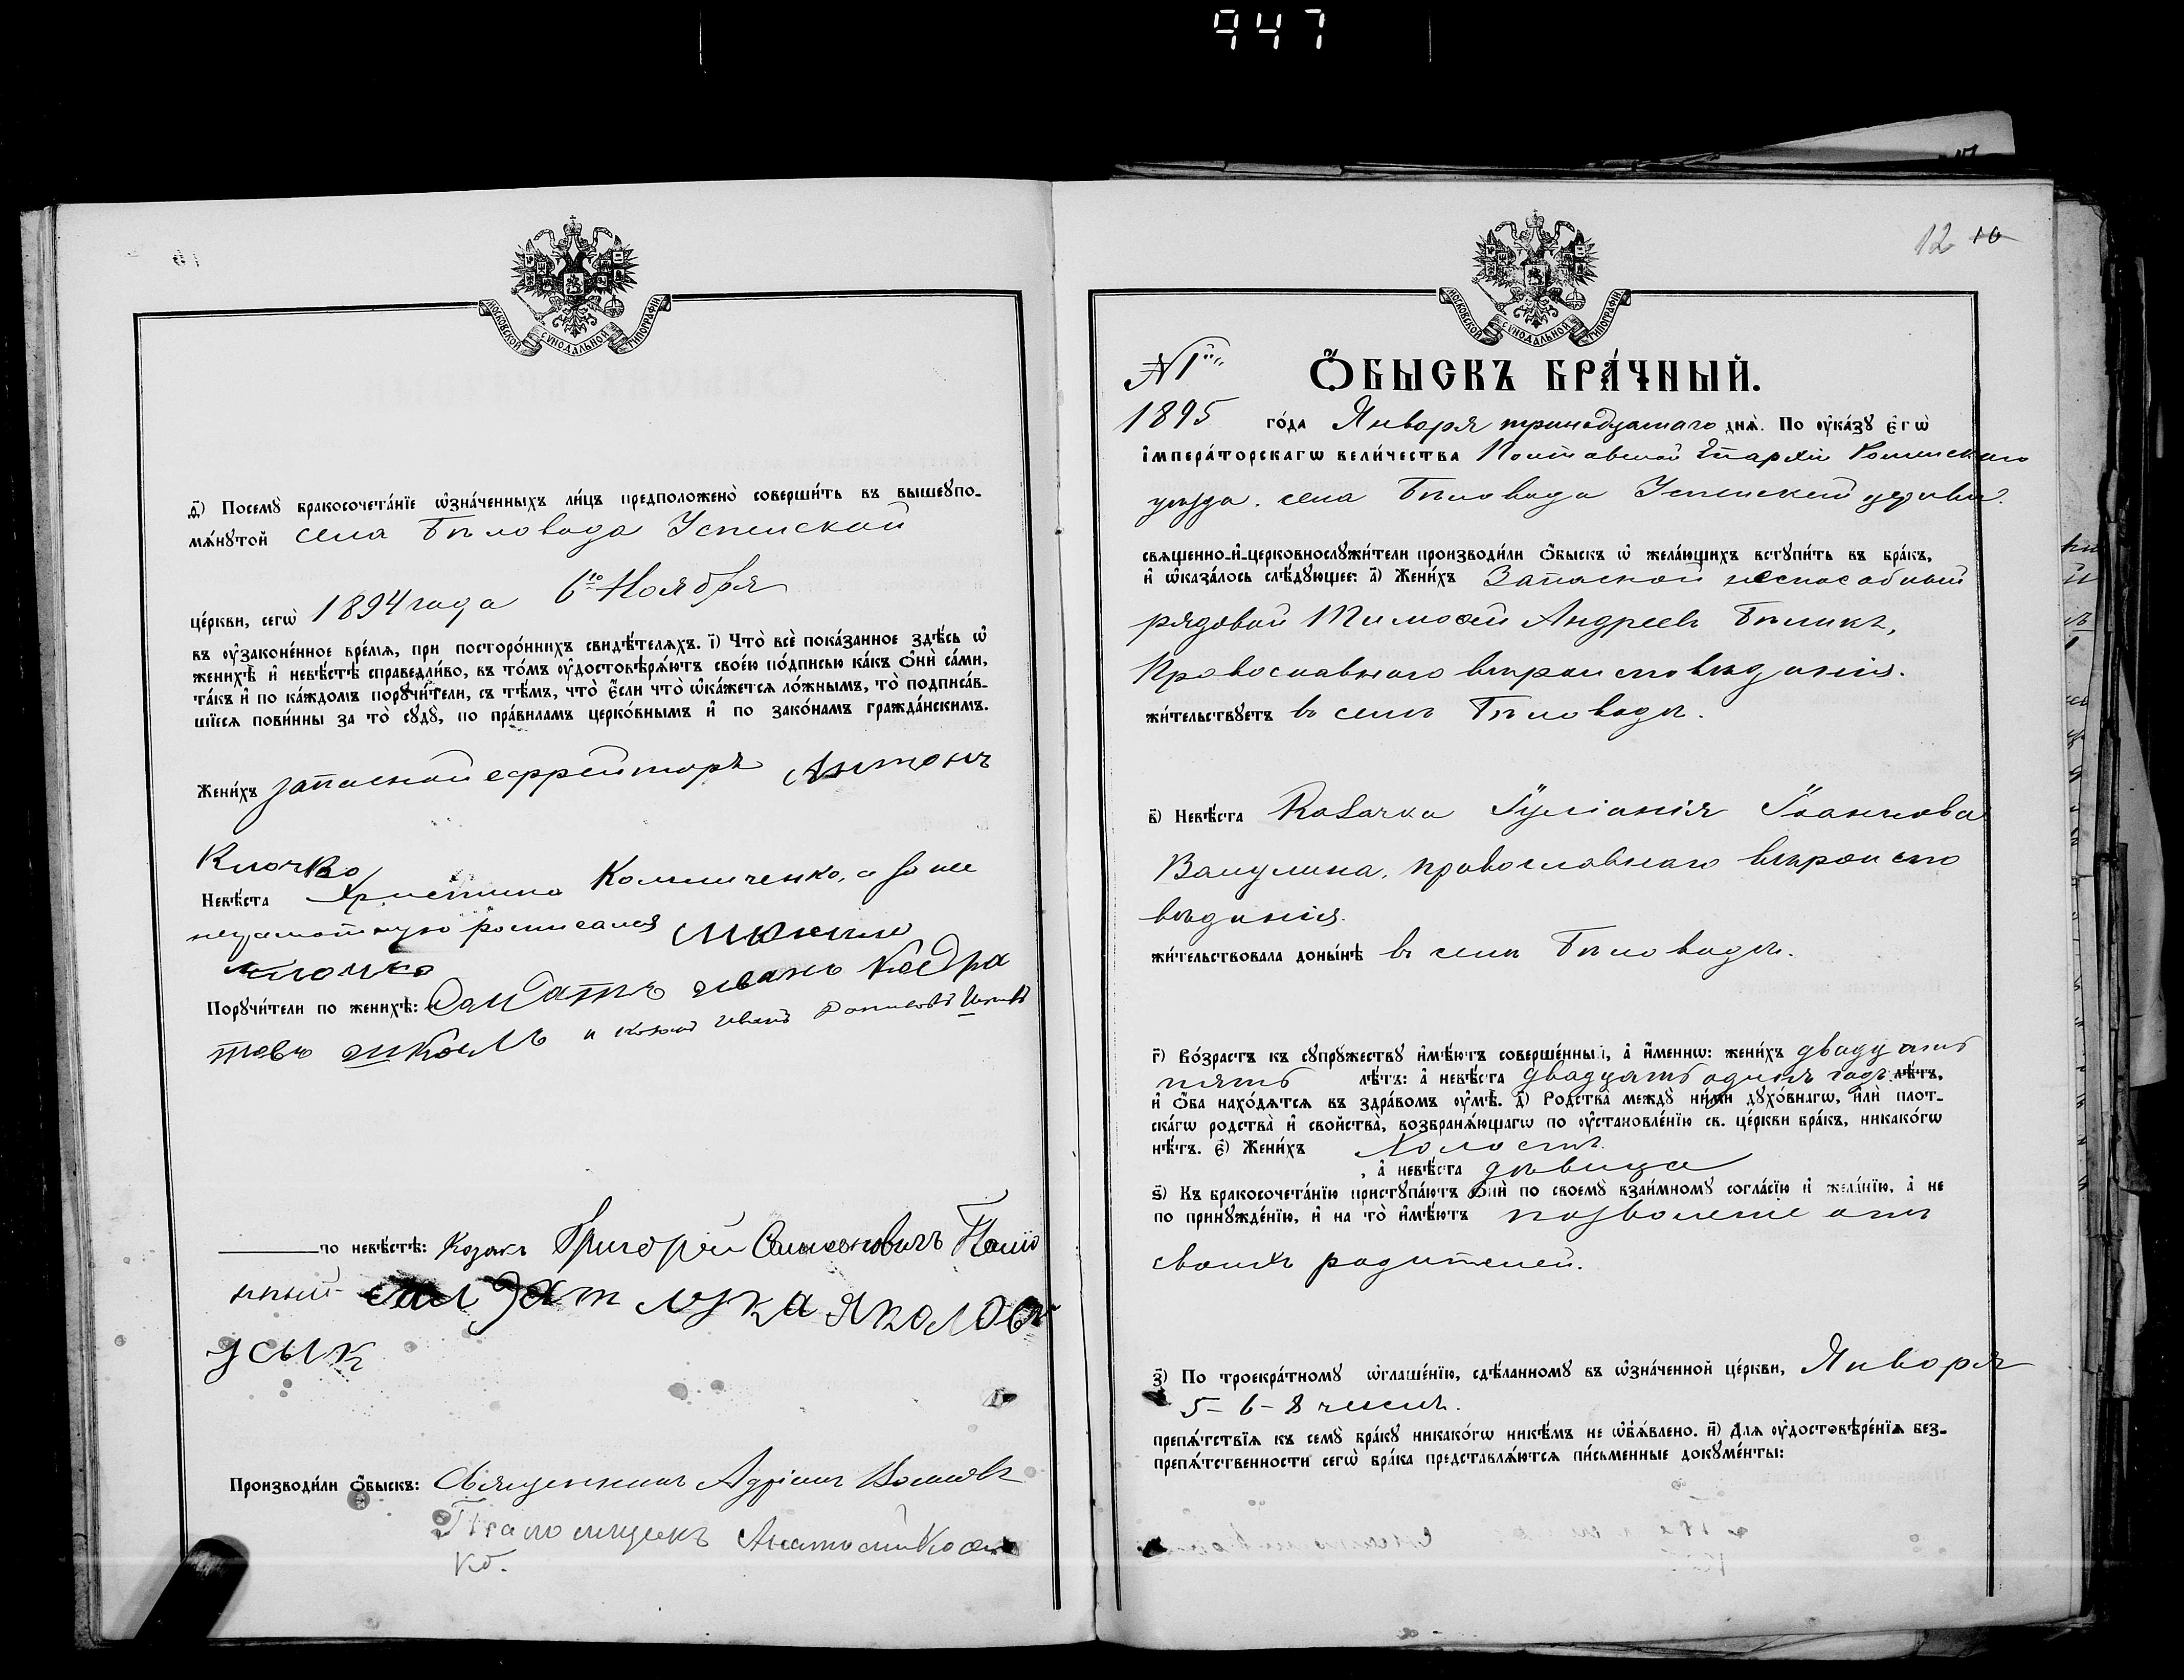 947
МОСКОВСКОЙ СѴНОДАЛЬНОЙ ТИПОГРАФІИ
д҃) Посемꙋ̀ бракосочета́нїе ѡ҆зна́ченныхъ ли́цъ предположено̀ соверши́ть въ вышеꙋпо-
мѧ́нꙋтой села Бѣловода Успенской
це́ркви, сегѡ̀ 1894 года 6го Ноября
въ ᲂу҆законе́нное вре́мѧ, при посторо́ннихъ свидѣ́телѧхъ. і҃) Что̀ всѐ пока́занное здѣ́сь ѡ҆
женихѣ̀ и҆ невѣ́стѣ справедли́во, въ то́мъ ᲂу҆достовѣрѧ́ютъ свое́ю по́дписью ка́къ ѻ҆нѝ са́ми,
та́къ и҆ по ка́ждомъ порꙋчи́тели, съ тѣ́мъ, что̀ є҆́сли что̀ ѡ҆ка́жетсѧ ло́жнымъ, то̀ подписа́в-
шїесѧ пови́нны за то̀ сꙋдꙋ̀, по пра́виламъ церко́внымъ и҆ по зако́намъ гражда́нскимъ.
Жени́хъ запасной ефрейторъ Антонъ
Клочко
Невѣ́ста Христина а за нее
неграмотную росписался
Клочко
Порꙋчи́тели по женихѣ̀: Солдатъ Иванъ Кодра
товъ и козакъ Иванъ
по невѣ́стѣ: Козакъ Григорій Симоновичъ
салдат лука яколов
усык
Производи́ли ѻ҆́быскъ: Священникъ Адріанъ
Псаломщикъ Анатолій
12 10
МОСКОВСКОЙ СѴНОДАЛЬНОЙ ТИПОГРАФІИ
N 1й
Ѻ҆́БЫСКЪ БРА́ЧНЫЙ.
1895 го́да Января тринадцатаго днѧ̀. По ᲂу҆ка́зꙋ є҆гѡ̀
і҆мпера́торскагѡ вели́чества Полтавской Епархіи Роменскаго
уѣзда. села Бѣловода Успенской церкви.
свѧщенно-и҆-церковнослꙋжи́тели производи́ли ѻ҆́быскъ ѡ҆ жела́ющихъ встꙋпи́ть въ бра́къ,
и҆ ѡ҆каза́лось слѣ́дꙋющее: а҃) Жени́хъ Запасной неспособный
рядовой Тимофей Андреевъ Бѣликъ,
Православнаго вѣроисповѣданія.
жи́тельствꙋетъ въ селѣ Бѣловодѣ.
в҃) Невѣ́ста Козачка Іуліанія Іоаннова
Вакулина, православнаго вѣроиспо
вѣданія.
жи́тельствовала доны́нѣ въ селѣ Бѣловодѣ.
г҃) Во́зрастъ къ сꙋпрꙋ́жествꙋ и҆мѣ́ютъ соверше́нный, а҆ и҆́меннѡ: жени́хъ двадцать
пять лѣ́тъ: а҆ невѣ́ста двадцать одинъ годъ лѣ́тъ,
и҆ ѻ҆́ба нахо́дѧтсѧ въ здра́вомъ ᲂу҆мѣ̀. д҃) Родства̀ междꙋ ни́ми дꙋхо́внагѡ, и҆лѝ плот-
ска́гѡ родства̀ и҆ сво́йства, возбранѧ́ющагѡ по ᲂу҆становле́нїю св. це́ркви бра́къ, никако́гѡ
нѣ́тъ. є҃) Жени́хъ Холостъ
, а҆ невѣ́ста дѣвица
ѕ҃) Къ бракосочета́нїю пристꙋпа́ютъ ѻ҆нѝ по своемꙋ̀ взаи́мномꙋ согла́сїю и҆ жела́нїю, а҆ не
по принꙋжде́нїю, и҆ на то̀ и҆мѣ́ютъ позволеніе отъ
своихъ родителей.
з҃) По троекра́тномꙋ ѡ҆глаше́нїю, сдѣ́ланномꙋ въ ѡ҆зна́ченной це́ркви, Января
5-6-8 чиселъ.
препѧ́тствїѧ къ семꙋ̀ бра́кꙋ никако́гѡ никѣ́мъ не ѡ҆б̾ѧ́влено. и҃) Для ᲂу҆достовѣре́нїѧ без-
препѧ́тственности сегѡ̀ бра́ка представлѧ́ютсѧ пи́сьменные докꙋме́нты: